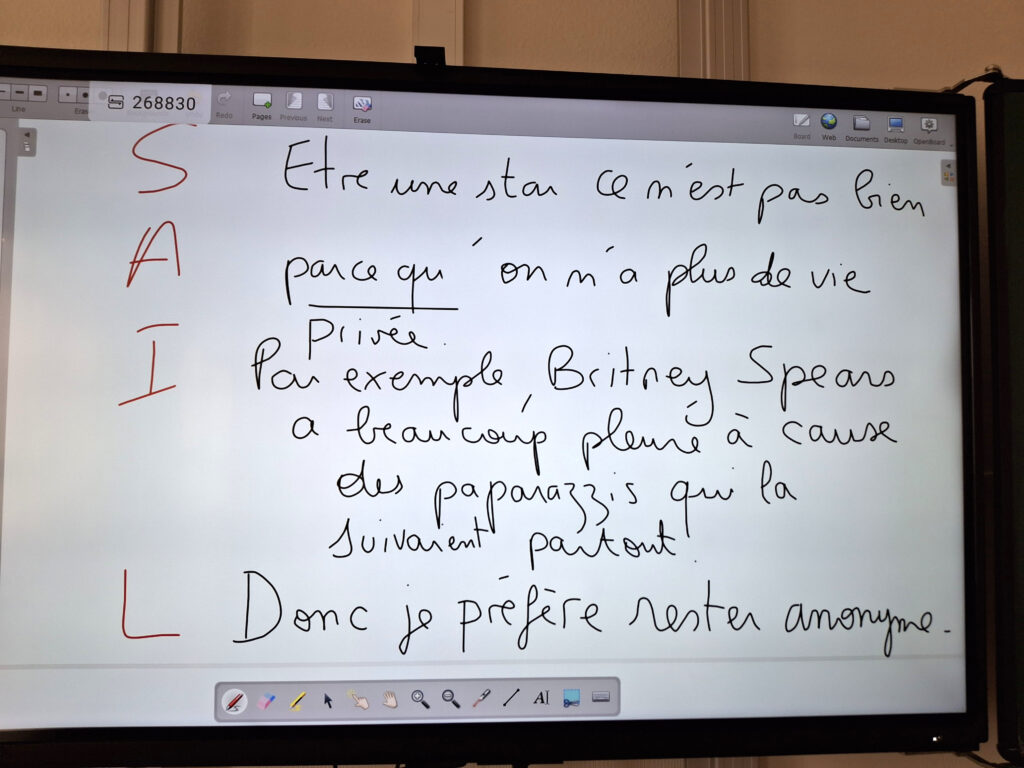 Line
268830
Redo
Pages
Previous
Next
Erase
Board
Web
Documents
Desktop
OpenBoard
S Etre une star ce n'est pas bien
A parce qu'on n'a plus de vie
privée.
I Par exemple, Britney Spears
a beaucoup pleuré à cause
des paparazzis qui la
suivaient partout.
L Donc je préfère rester anonyme.
AI